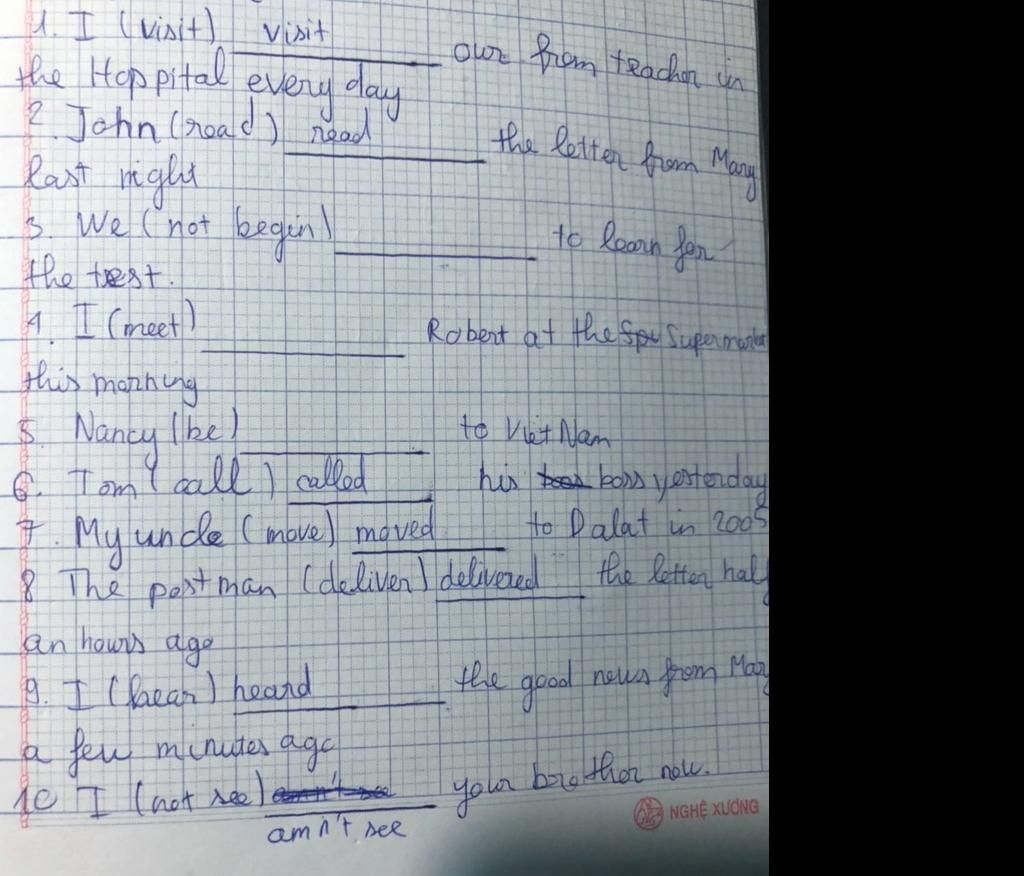 1. I (visit) visit our from teacher in
the Hoppital every day
2. John (road) read the letter from Mary
last night
3. We (not begin) to learn for
the test.
4. I (meet) Robert at the Supermarket
this morning
5. Nancy (be) to Viet Nam
6. Tom (call) called his boss yesterday
7. My uncle (move) moved to Dalat in 2005
8 The postman (deliver) delivered the letter half
an hours ago
9. I (hear) heard the good news from Mary
a few minutes ago
10 I (not see) your brother now.
amn't see
NGHỆ XƯƠNG